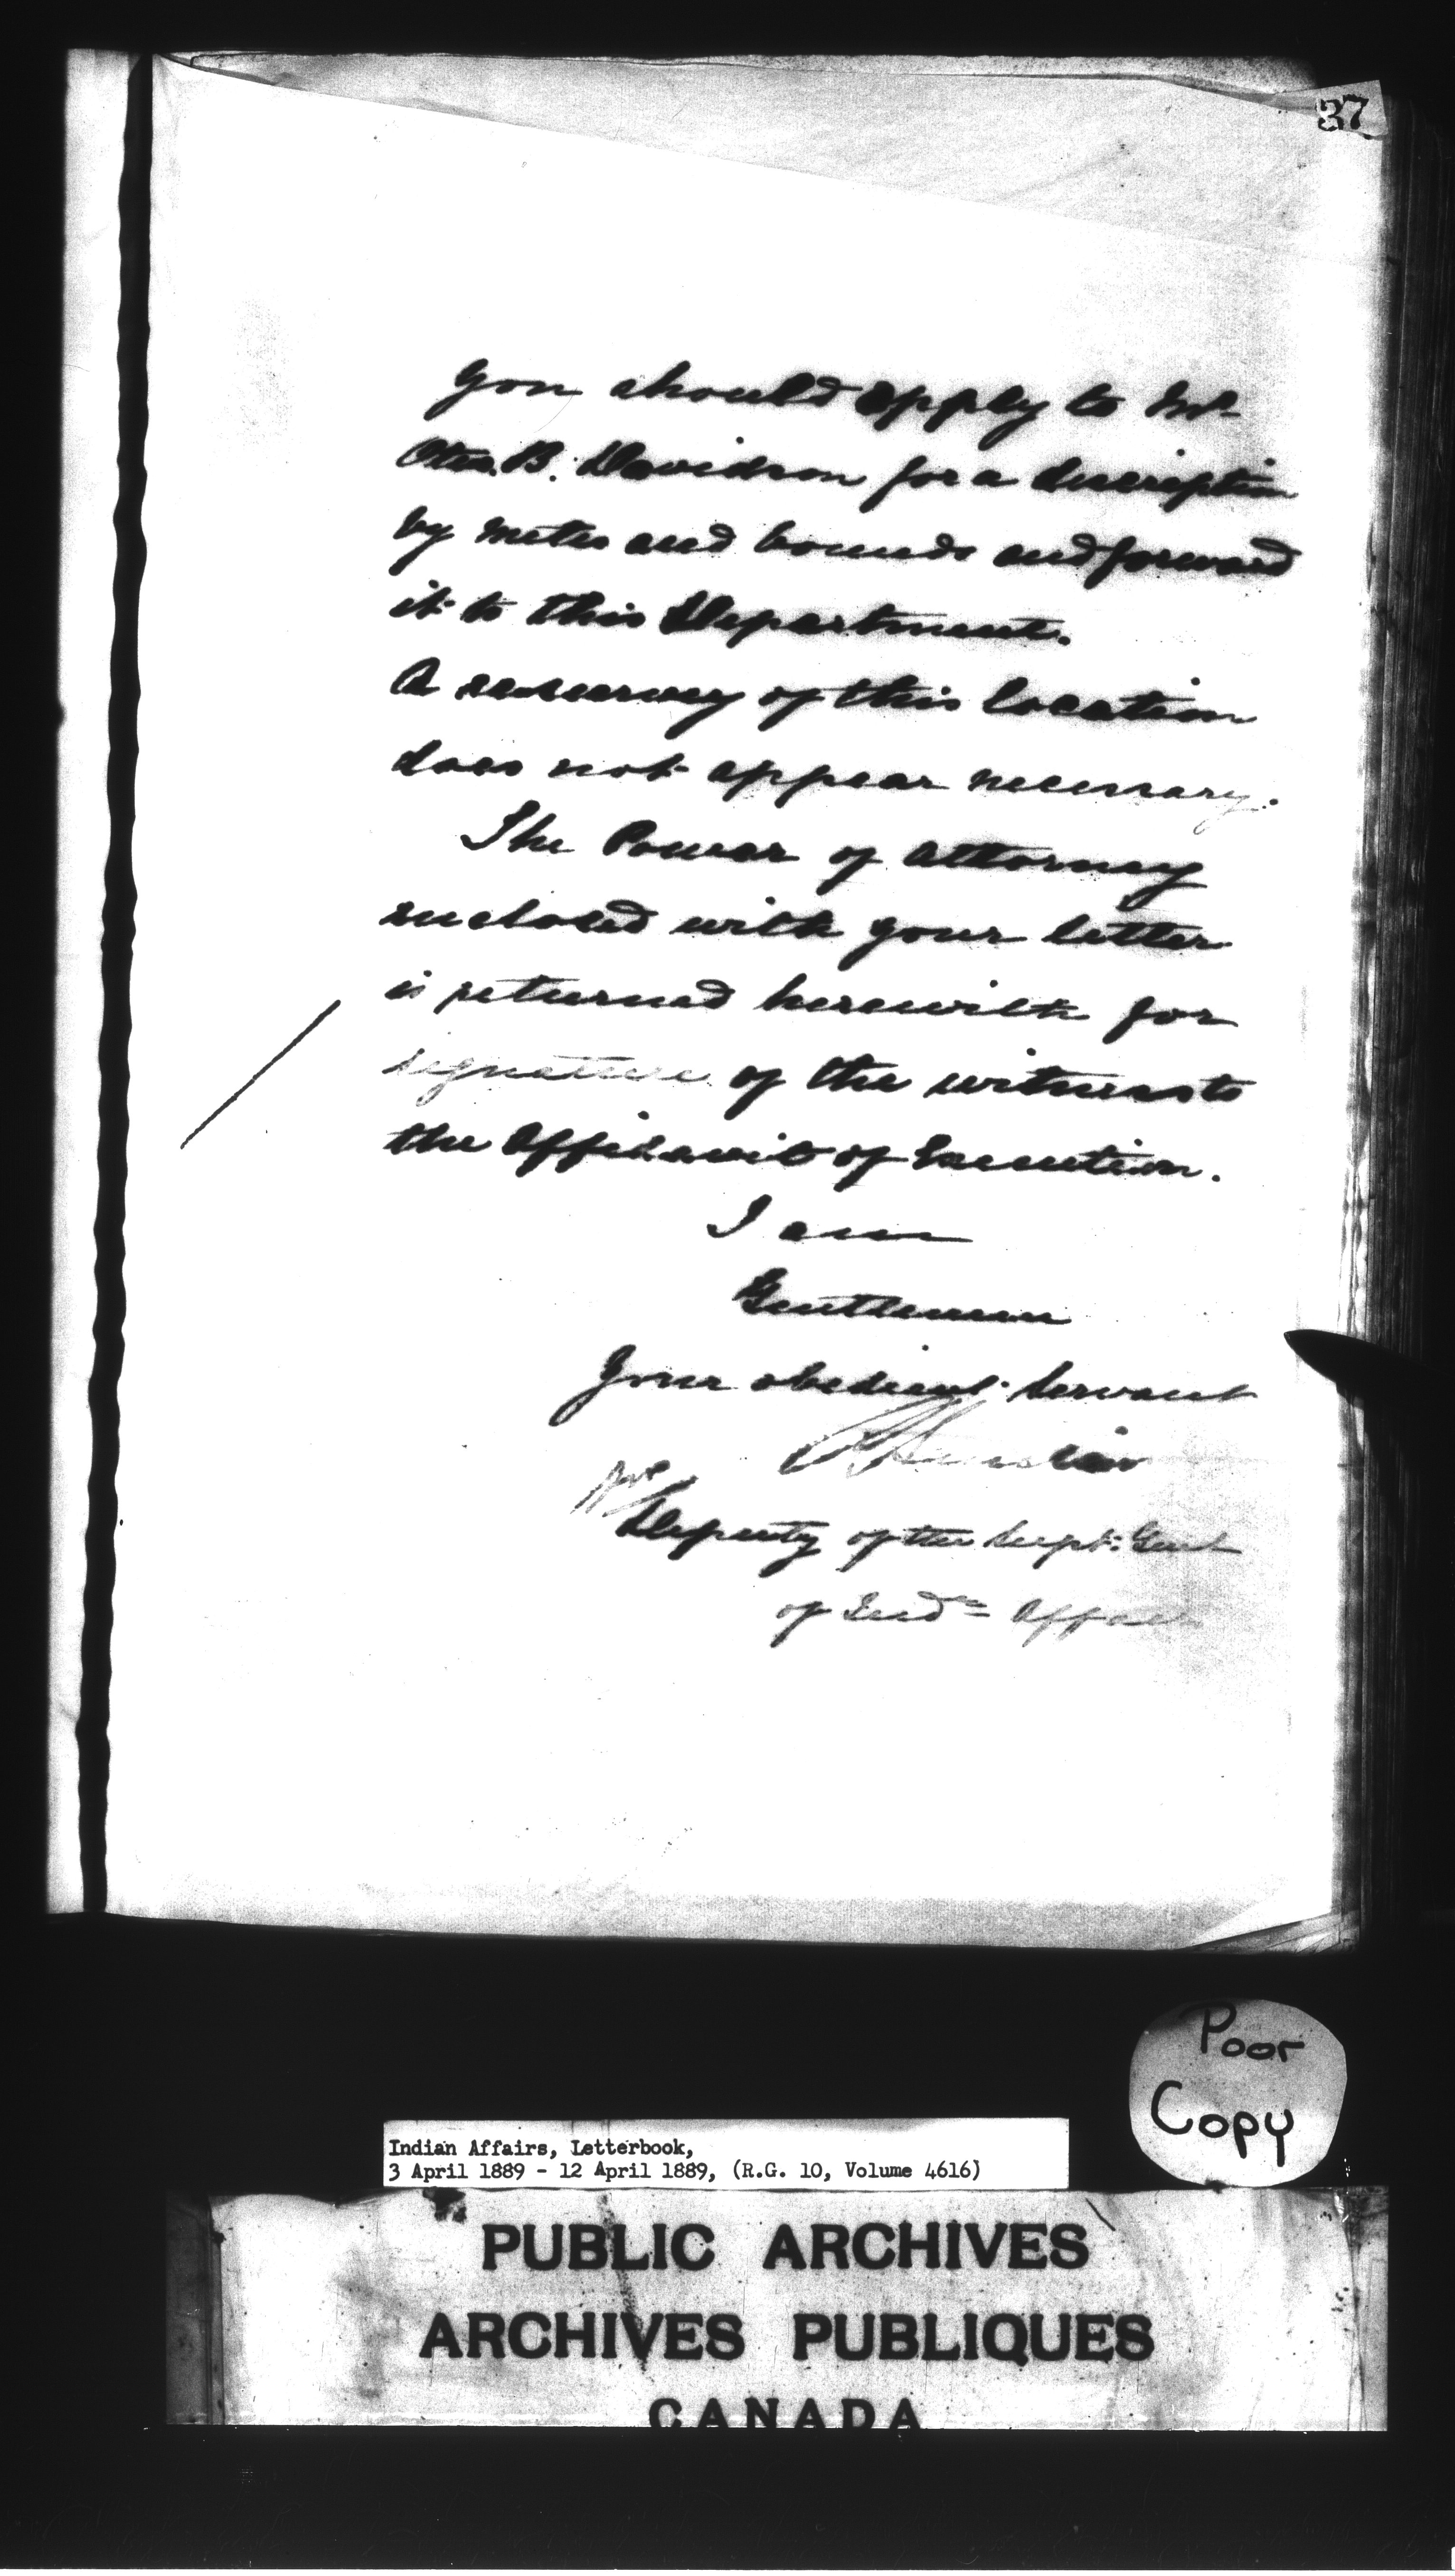 37
You should apply to Mr
B. Davidson for a description
by metes and bounds and forward
it to this Department.
A resurvey of this location
does not appear necessary.
The Power of Attorney
enclosed with your letter
is returned herewith for
signature of the witness to
the Affidavit of Execution.
I am
Gentlemen
Your obedient Servant
for
Deputy of the Supt: Genl
of Indn Affairs
Poor
Copy
Indian Affairs, Letterbook,
3 April 1889 - 12 April 1889, (R.G. 10, Volume 4616)
PUBLIC ARCHIVES
ARCHIVES PUBLIQUES
CANADA